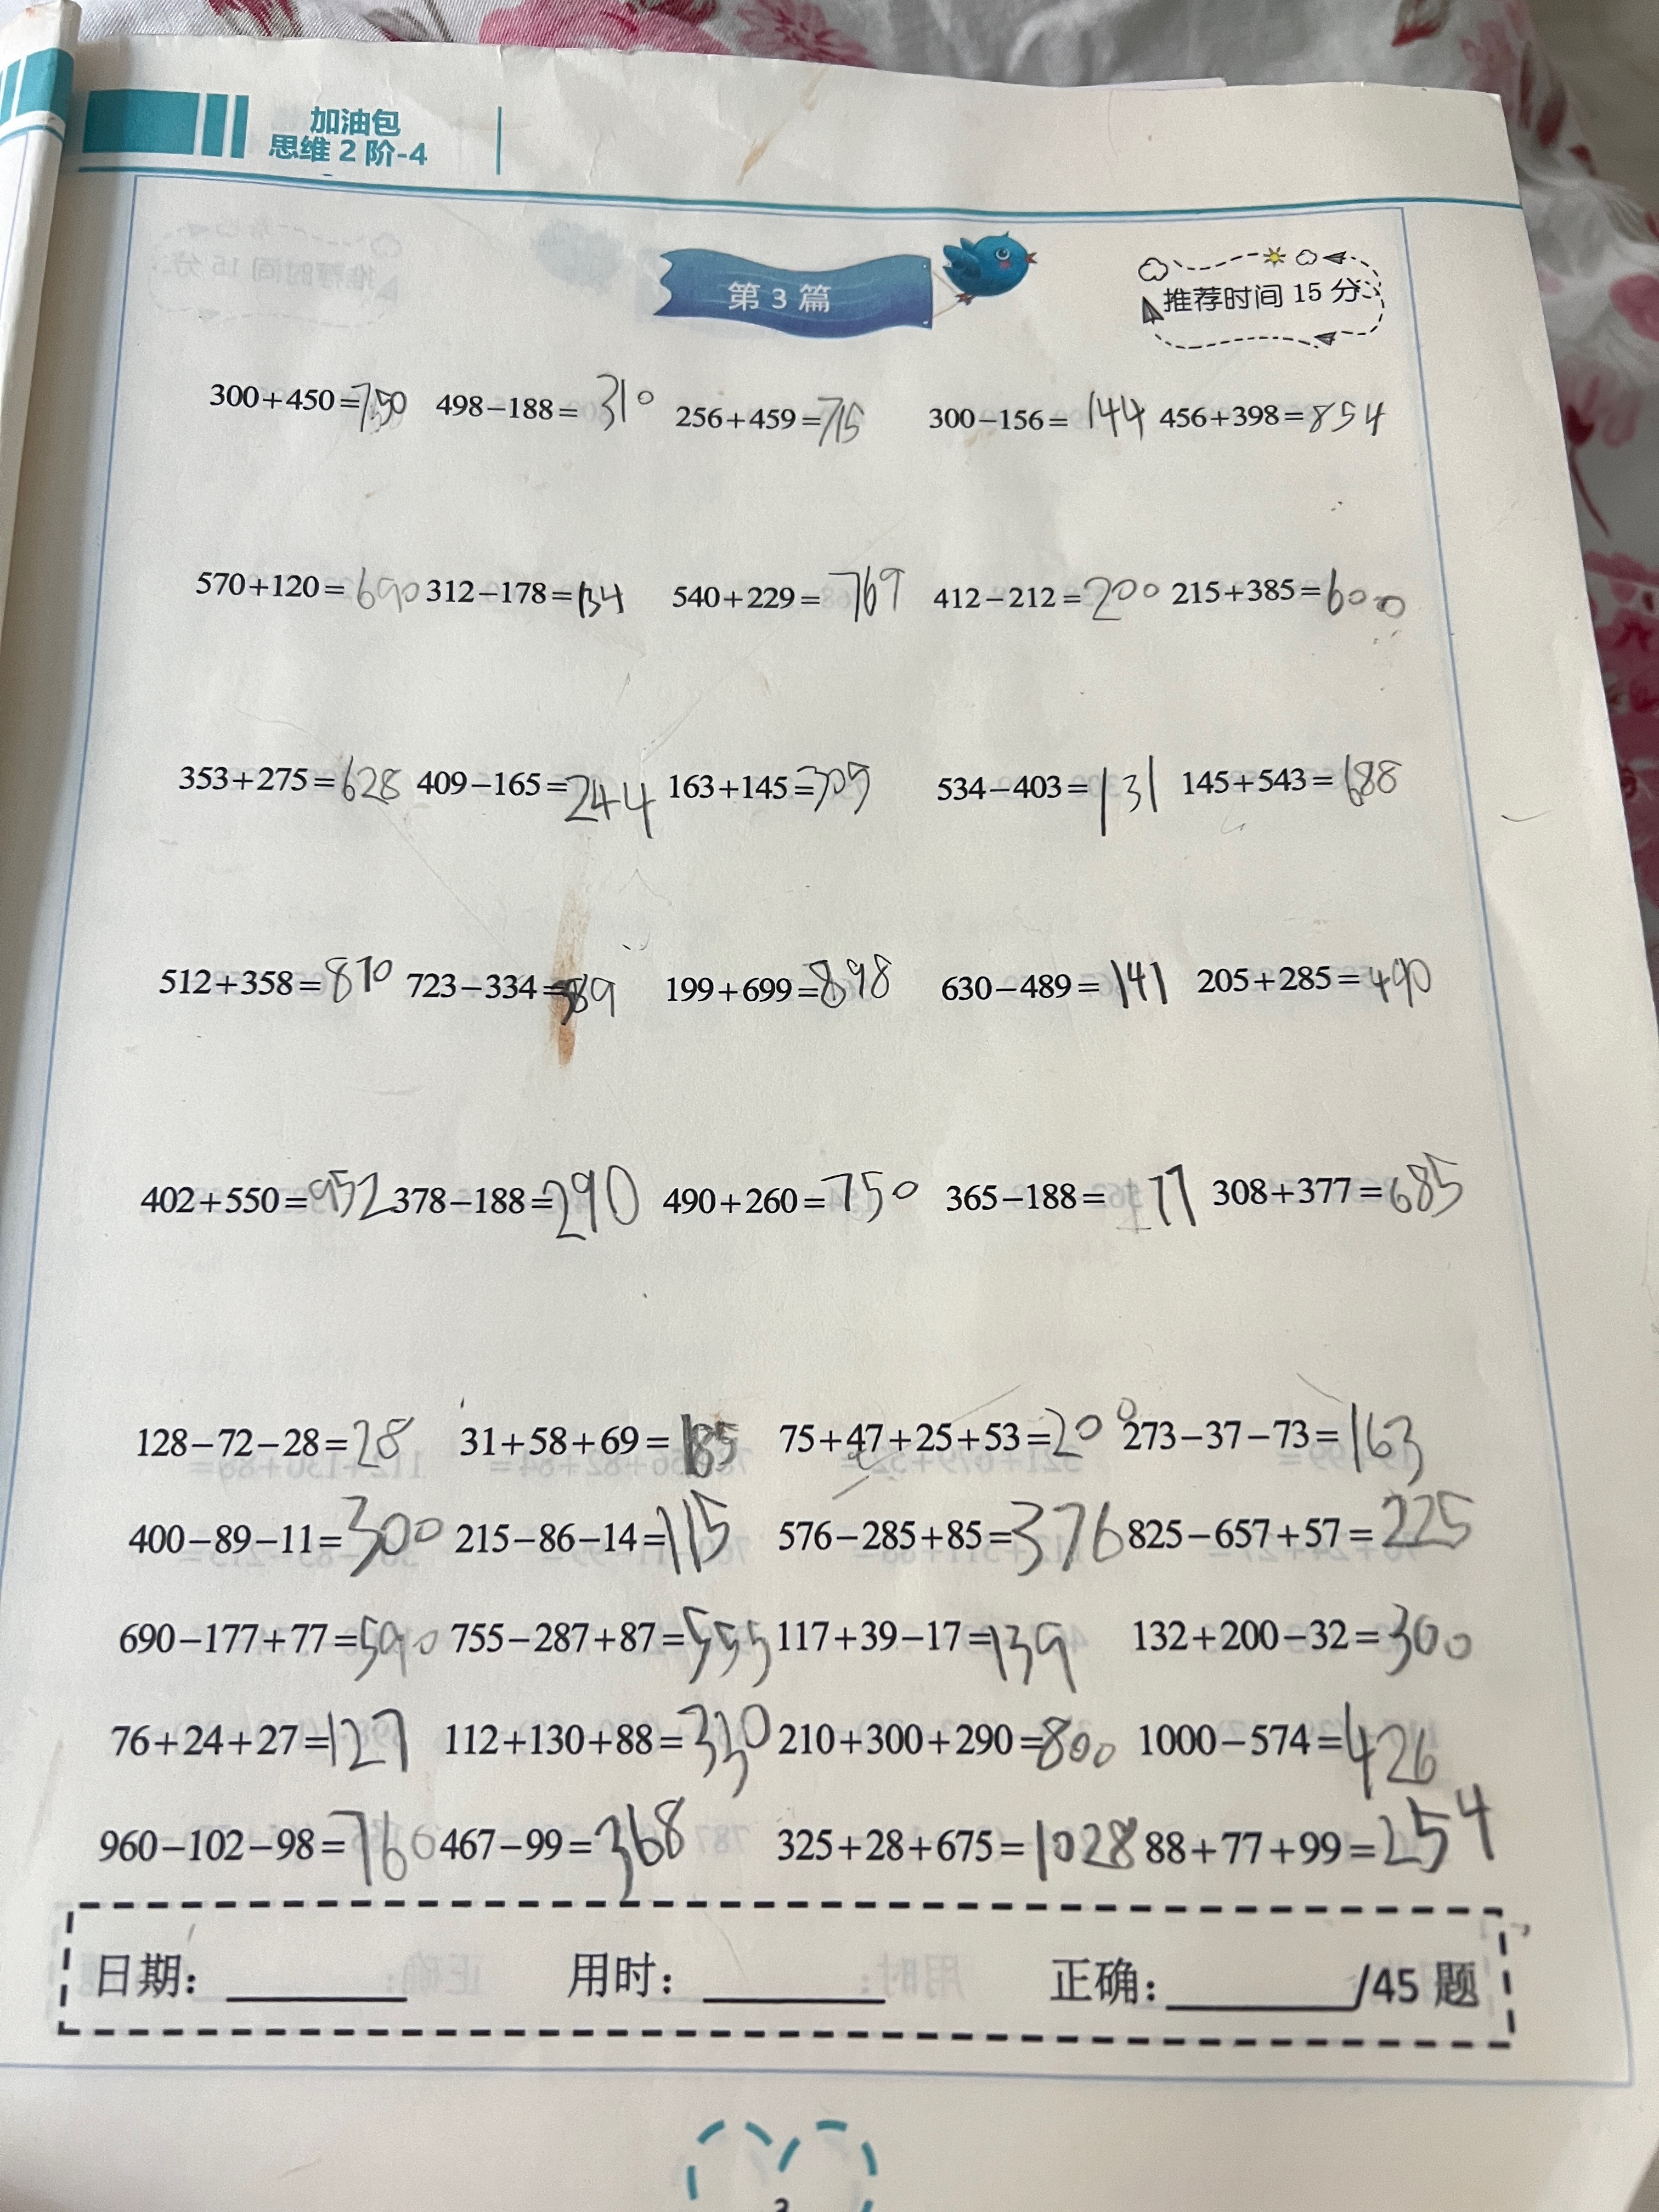 加油包
思维 2 阶-4
第 3 篇
推荐时间 15 分
300+450=750 498-188=310 256+459=715 300-156=144 456+398=854
570+120=690 312-178=134 540+229=769 412-212=200 215+385=600
353+275=628 409-165=244 163+145=309 534-403=131 145+543=688
512+358=870 723-334=389 199+699=898 630-489=141 205+285=490
402+550=952 378-188=290 490+260=750 365-188=177 308+377=685
128-72-28=28 31+58+69= 75+47+25+53=200 273-37-73=163
400-89-11=300 215-86-14=115 576-285+85=376 825-657+57=225
690-177+77=590 755-287+87=555 117+39-17=139 132+200-32=300
76+24+27=127 112+130+88=330 210+300+290=800 1000-574=426
960-102-98=760 467-99=368 325+28+675=1028 88+77+99=254
日期: 用时: 正确: /45 题
3